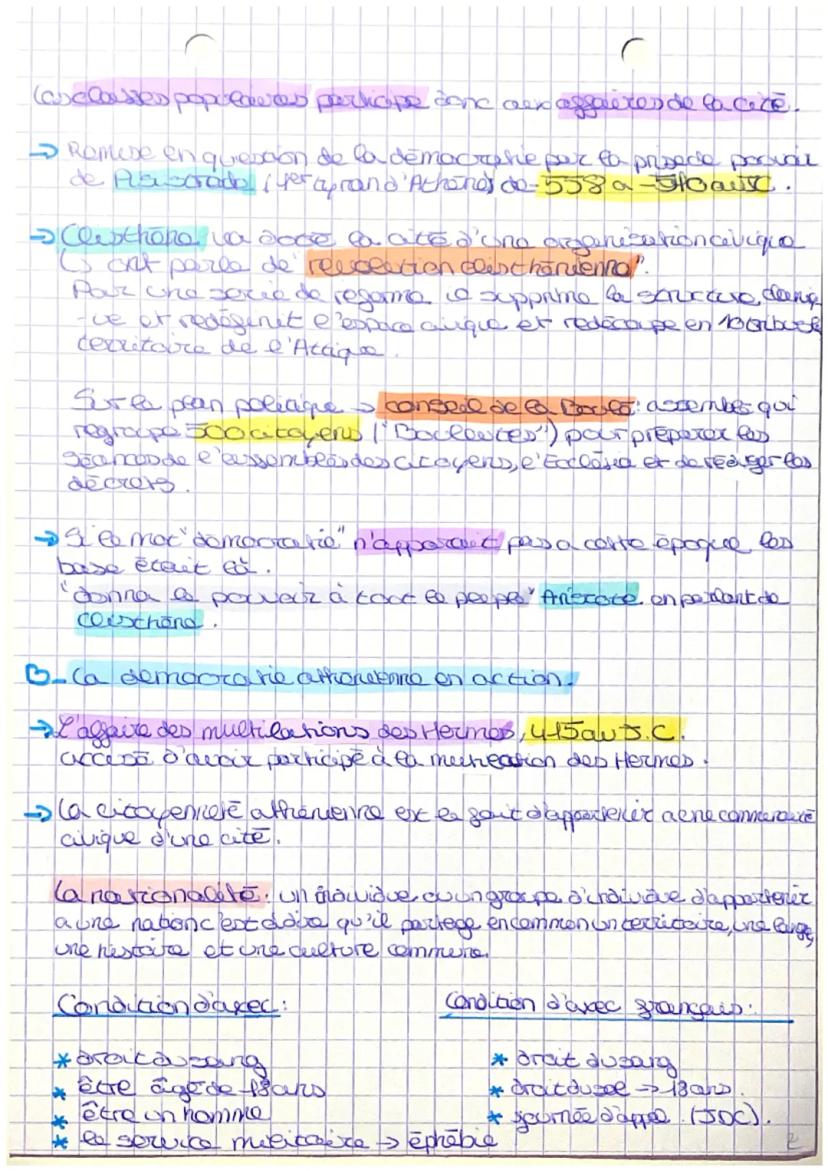 Les classes populaires participe donc aux affaires de la cité.
→ Remise en question de la démocratie par la prise de pouvoir
de Pisistrade (1er tyran d'Athènes) de -558 a -510 av JC.
→ Clisthène va doté la cité d'une organisation civique
↳ ont parle de "révolution clisthénienne".
Par une série de reforme il supprime la structure, clanique
et redéfinit l'espace civique et redécoupe en 10 tribus le
territoire de l'Attique.
Sur le plan politique → conseil de la Boulé: assemblé qui
regroupe 500 citoyens ("Bouleutes") pour préparer les
séances de l'assemblées des citoyens, l'Ecclésia et de rédiger les
décrets.
→ Si le mot "démocratie" n'apparait pas a cette époque les
base était là.
"donna le pouvoir à tout le peuple" Aristote en parlant de
Clisthène.
B- La démocratie athénienne en action.
→ L'affaire des multilations des Hermes, 415 av J.C.
accusé d'avoir participé à la mutilation des Hermes.
→ La citoyenneté athénienne est le fait d'appartenir a une communauté
civique d'une cité.
La nationalité: un individue ou un groupe d'individue d'appartenir
a une nation c'est à dire qu'il partage en commun un territoire, une langue,
une histoire et une culture commune.
Condition d'avec:
* droit du sang
* être âgé de 18 ans
* être un homme
* le service militaire → éphébie
Condition d'avec français:
* droit du sang
* droit du sol → 18 ans.
* journée d'appel (JDC).
2